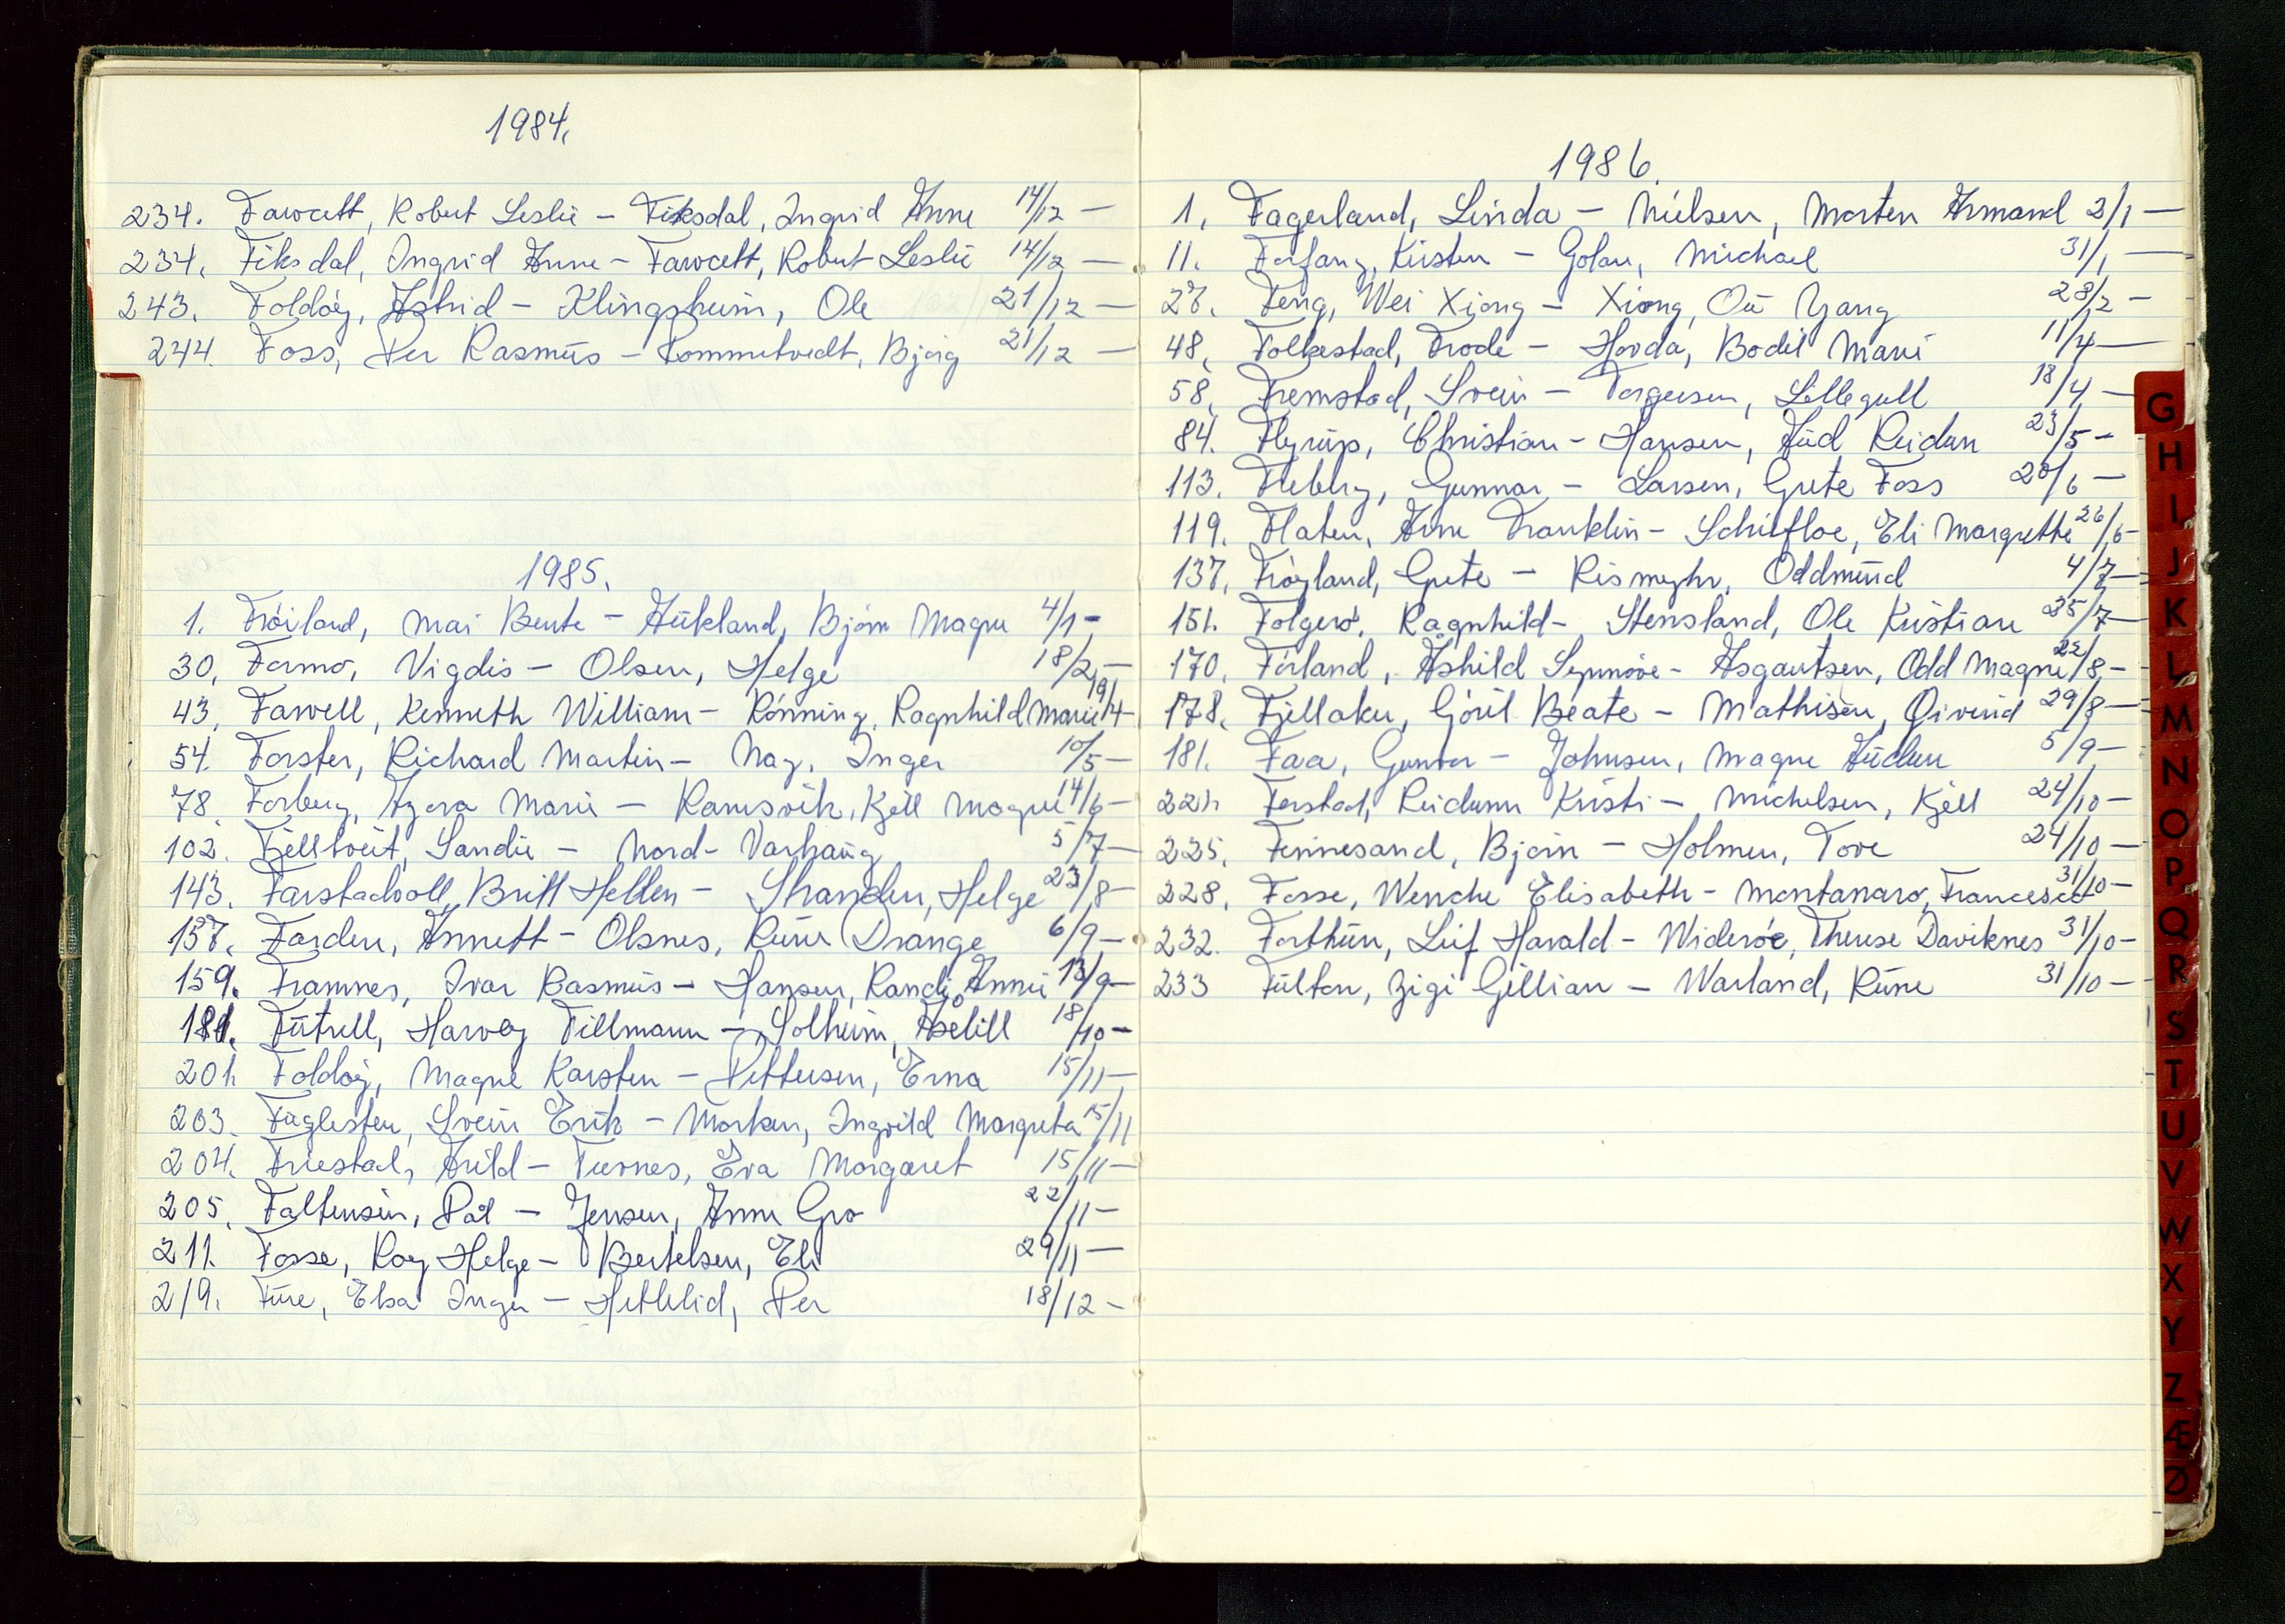 1984.
234. Fawcett, Robert Leslie - Fiksdal, Ingrid Anne 14/12 -
234. Fiksdal, Ingrid Anne - Fawcett, Robert Leslie 14/12 -
243. Foldøy, Astrid - Klingsheim, Ole 21/12 -
244. Foss, Per Rasmus - Tommetvedt, Bjørg 21/12 -
1985.
1. Frøiland, Mai Bente - Aukland, Bjørn Magne 4/1 -
30. Formo, Vigdis - Olsen, Helge 18/2 -
43. Farvell, Kenneth William - Rønning, Ragnhild Marie 19/4
54. Forster, Richard Martin - Nag, Inger 10/5 -
78. Forberg, Agora Marie - Ramsvik, Kjell Magne 14/6 -
102. Fjelltveit, Sandie - Nord-Varhaug 5/7 -
143. Farstadvoll, Britt Hellen - Stranden, Helge 23/8 -
157. Farden, Annett - Olsnes, Rune Drange 6/9 -
159. Framnes, Ivar Rasmus - Hansen, Randi Annie 13/9 -
181. Futrell, Harvey Tillmann - Solheim, Åselill 18/10 -
201. Foldøy, Magne Karsten - Pettersen, Erna 15/11 -
203. Fuglesten, Svein Erik - Morken, Ingvild Margreta 15/11
204. Friestad, Arild - Tuvnes, Eva Margaret 15/11 -
205. Faltensen, Pål - Jensen, Anne Gro 22/11 -
211. Fosse, Roy Helge - Bertelsen, Eli 29/11 -
219. Fure, Elsa Inger - Hetlelid, Per 18/12 -
1986.
1. Fagerland, Linda - Nielsen, Morten Armand 3/1 -
11. Forfang, Kirsten - Golan, Michael 31/1 -
27. Feng, Wei Xiong - Xiong, Ou Yang 28/2 -
48. Folkestad, Frode - Hovda, Bodil Marie 11/4 -
58. Fremstad, Svein - Torgersen, Lillegull 18/4 -
84. Flyrup, Christian - Hansen, Aud Reidun 23/5 -
113. Fleberg, Gunnar - Larsen, Grete Foss 20/6 -
119. Flaten, Arne Franklin - Schiefloe, Eli Margrethe 26/6 -
137. Frøyland, Grete - Rismyhr, Oddmund 4/7 -
151. Folgerø, Ragnhild - Stensland, Ole Kristian 25/7 -
170. Førland, Åshild Synnøve - Asgautsen, Odd Magne 22/8 -
178. Fjellaker, Gøril Beate - Mathisen, Øivind 29/8 -
181. Faa, Gunvor - Johnsen, Magne Audun 5/9 -
221. Forstad, Reidunn Kristi - Michelsen, Kjell 24/10 -
225. Finnesand, Bjørn - Holmen, Tove 24/10 -
228. Fosse, Wenche Elisabeth - Montanaro, Francesco 31/10 -
232. Forthun, Leif Harald - Widerøe, Therese Daviknes 31/10 -
233 Fulton, Zigi Gillian - Warland, Rune 31/10 -
G
H
I
J
K
L
M
N
O
P
Q
R
S
T
U
V
W
X
Y
Z
Æ
Ø